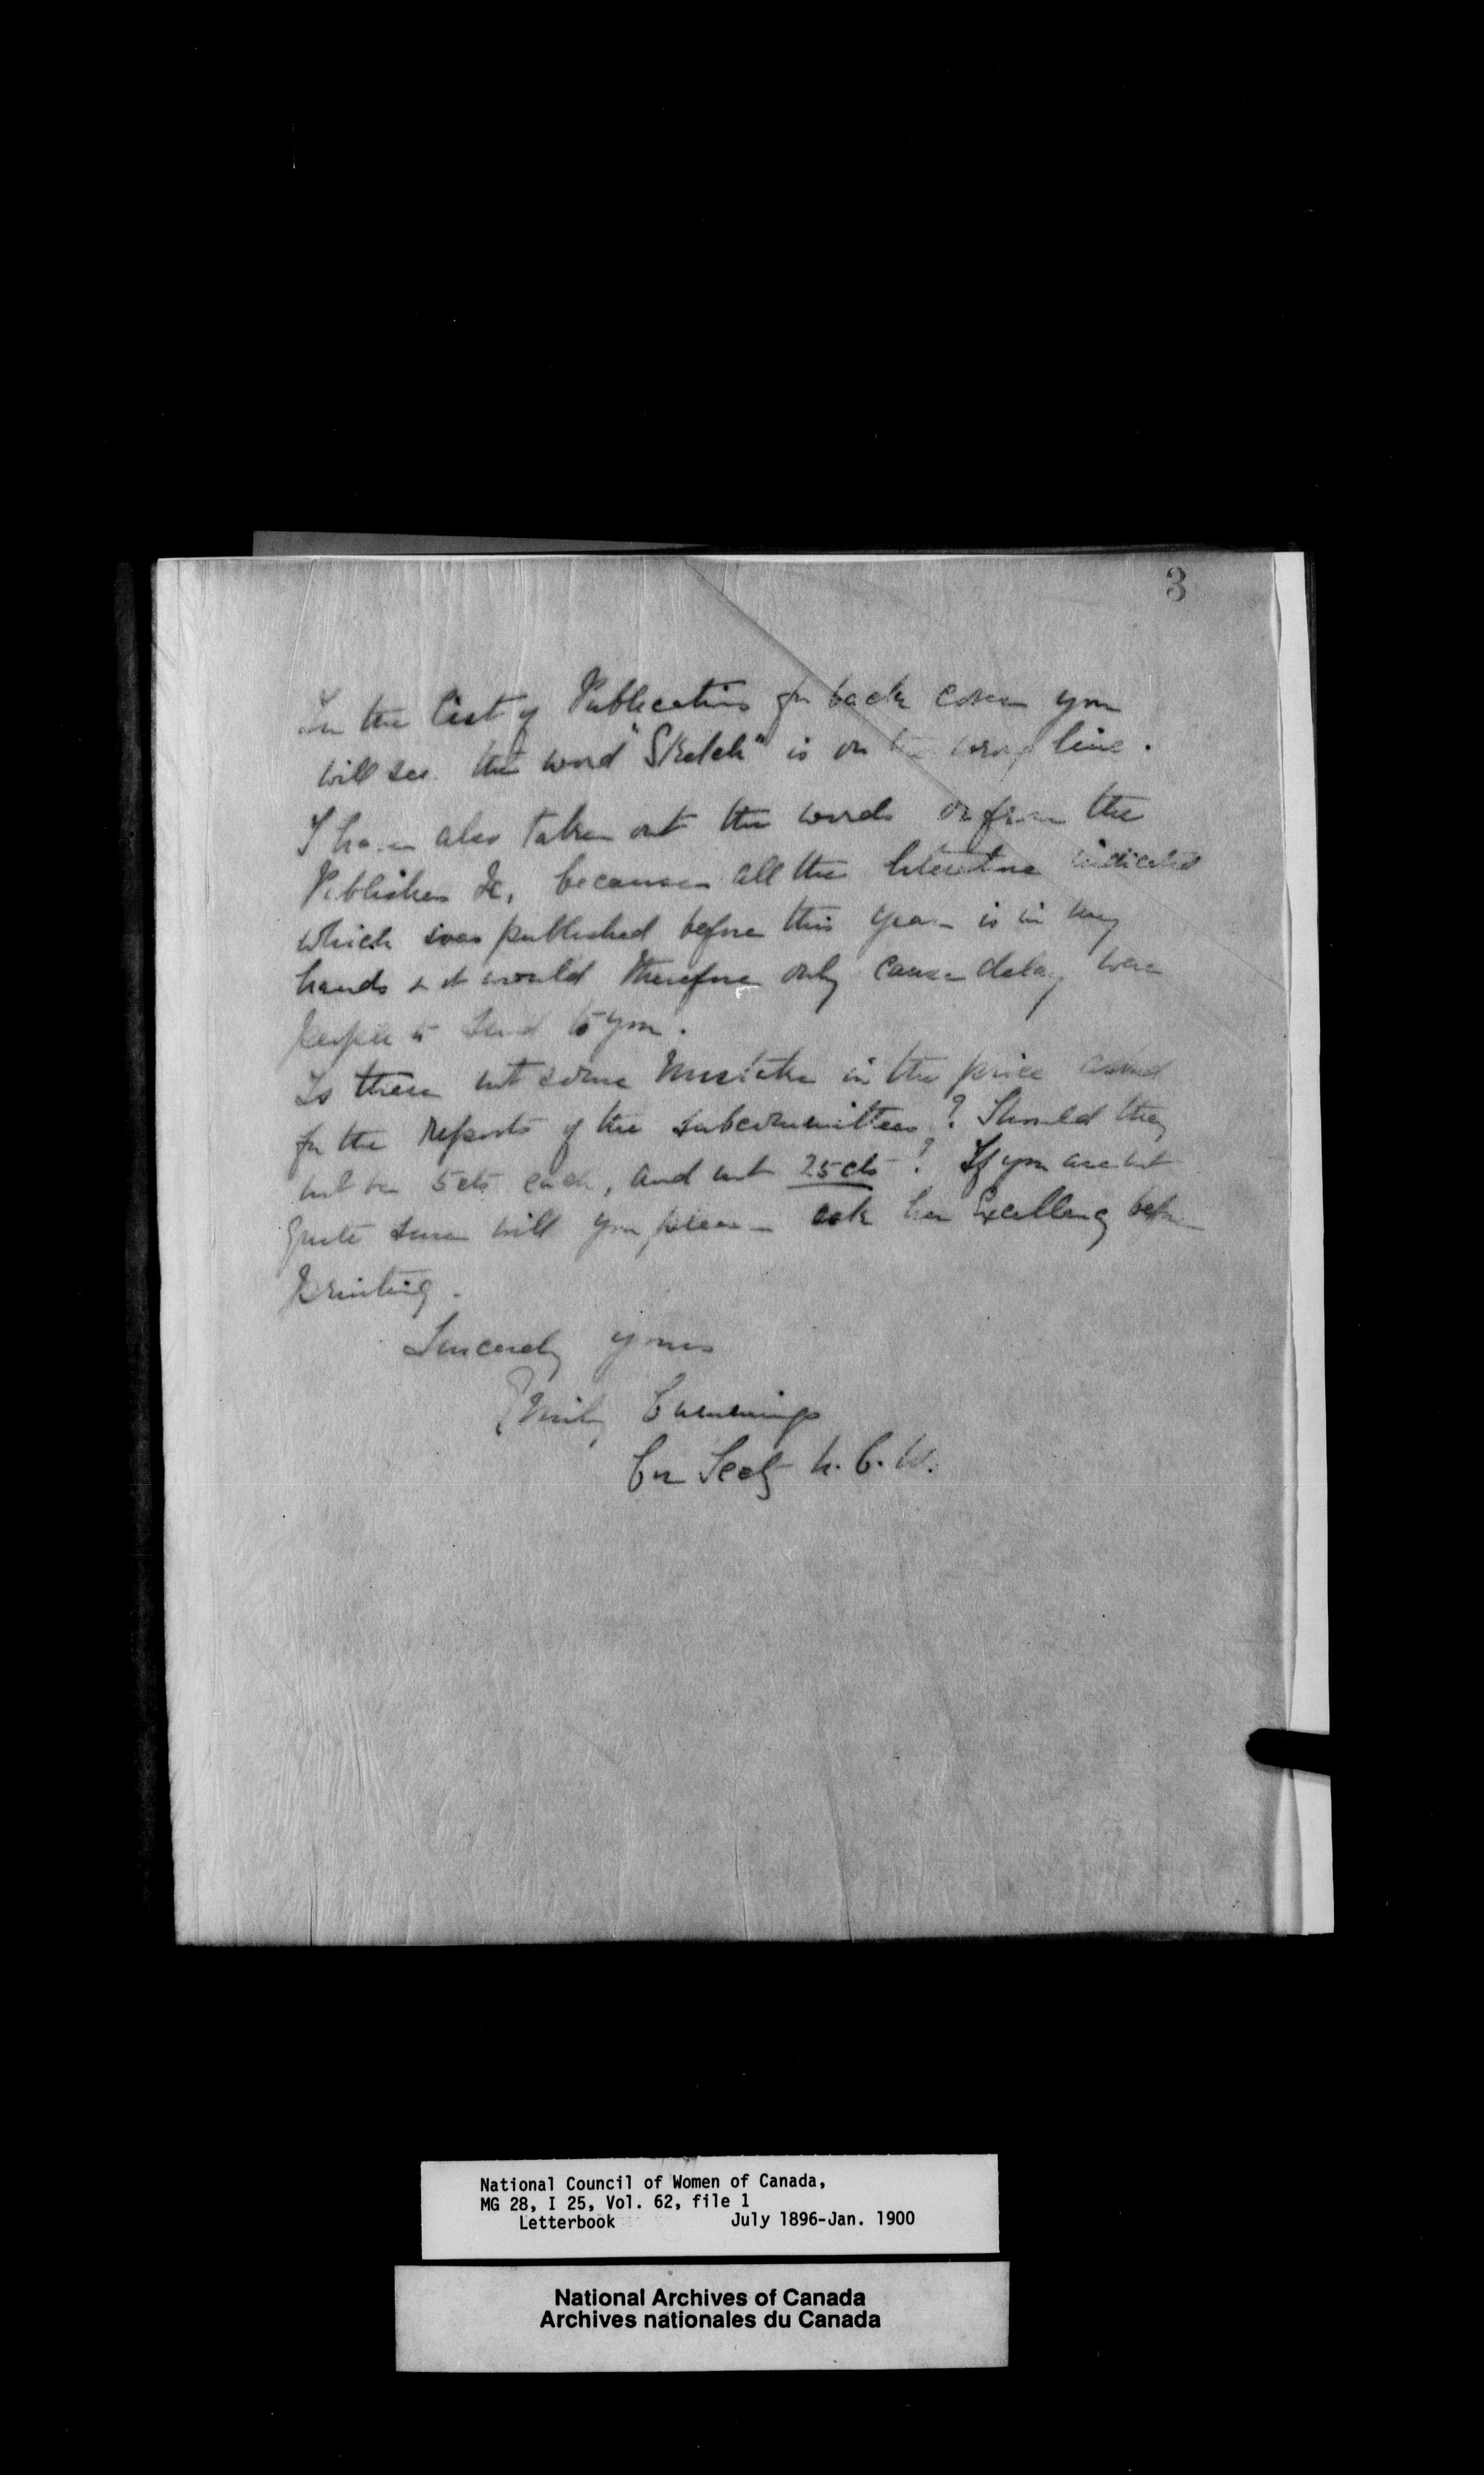 3
In the List of Publications for back cover you
will see the word "Sketch" is on the wrong line.
I have also taken out the words or from the
Publishers &c, because all the literature indicated
which was published before this year is in my
hands & it would therefore only cause delay were
people to send to you.
Is there not some mistake in the price asked
for the reports of the subcommittees? Should they
not be 5cts each, and not 25cts? If you are not
quite sure will you please ask her Excellency before
printing.
Sincerely yours
Emily Cummings
Cor Secty N.C.W.
National Council of Women of Canada,
MG 28, I 25, Vol. 62, file 1
Letterbook July 1896-Jan. 1900
National Archives of Canada
Archives nationales du Canada